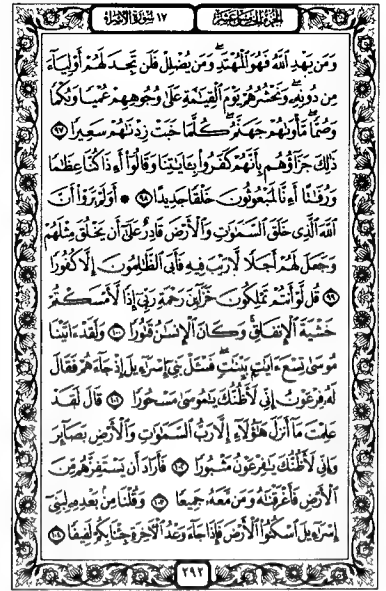 ١٧ سورة الإسراء الجزء الخامس عشر
وَمَن يَهْدِ ٱللَّهُ فَهُوَ ٱلْمُهْتَدِ وَمَن يُضْلِلْ فَلَن تَجِدَ لَهُمْ أَوْلِيَآءَ
مِن دُونِهِۦ وَنَحْشُرُهُمْ يَوْمَ ٱلْقِيَٰمَةِ عَلَىٰ وُجُوهِهِمْ عُمْيًا وَبُكْمًا
وَصُمًّا مَّأْوَىٰهُمْ جَهَنَّمُ كُلَّمَا خَبَتْ زِدْنَٰهُمْ سَعِيرًا ٩٧
ذَٰلِكَ جَزَآؤُهُم بِأَنَّهُمْ كَفَرُوا۟ بِـَٔايَٰتِنَا وَقَالُوٓا۟ أَءِذَا كُنَّا عِظَٰمًا
وَرُفَٰتًا أَءِنَّا لَمَبْعُوثُونَ خَلْقًا جَدِيدًا ٩٨ ۞ أَوَلَمْ يَرَوْا۟ أَنَّ
ٱللَّهَ ٱلَّذِى خَلَقَ ٱلسَّمَٰوَٰتِ وَٱلْأَرْضَ قَادِرٌ عَلَىٰٓ أَن يَخْلُقَ مِثْلَهُمْ
وَجَعَلَ لَهُمْ أَجَلًا لَّا رَيْبَ فِيهِ فَأَبَى ٱلظَّٰلِمُونَ إِلَّا كُفُورًا
٩٩ قُل لَّوْ أَنتُمْ تَمْلِكُونَ خَزَآئِنَ رَحْمَةِ رَبِّىٓ إِذًا لَّأَمْسَكْتُمْ
خَشْيَةَ ٱلْإِنفَاقِ وَكَانَ ٱلْإِنسَٰنُ قَتُورًا ١٠٠ وَلَقَدْ ءَاتَيْنَا
مُوسَىٰ تِسْعَ ءَايَٰتٍۭ بَيِّنَٰتٍ فَسْـَٔلْ بَنِىٓ إِسْرَٰٓءِيلَ إِذْ جَآءَهُمْ فَقَالَ
لَهُۥ فِرْعَوْنُ إِنِّى لَأَظُنُّكَ يَٰمُوسَىٰ مَسْحُورًا ١٠١ قَالَ لَقَدْ
عَلِمْتَ مَآ أَنزَلَ هَٰٓؤُلَآءِ إِلَّا رَبُّ ٱلسَّمَٰوَٰتِ وَٱلْأَرْضِ بَصَآئِرَ
وَإِنِّى لَأَظُنُّكَ يَٰفِرْعَوْنُ مَثْبُورًا ١٠٢ فَأَرَادَ أَن يَسْتَفِزَّهُم مِّنَ
ٱلْأَرْضِ فَأَغْرَقْنَٰهُ وَمَن مَّعَهُۥ جَمِيعًا ١٠٣ وَقُلْنَا مِنۢ بَعْدِهِۦ لِبَنِىٓ
إِسْرَٰٓءِيلَ ٱسْكُنُوا۟ ٱلْأَرْضَ فَإِذَا جَآءَ وَعْدُ ٱلْءَاخِرَةِ جِئْنَا بِكُمْ لَفِيفًا ١٠٤
٢٩٢